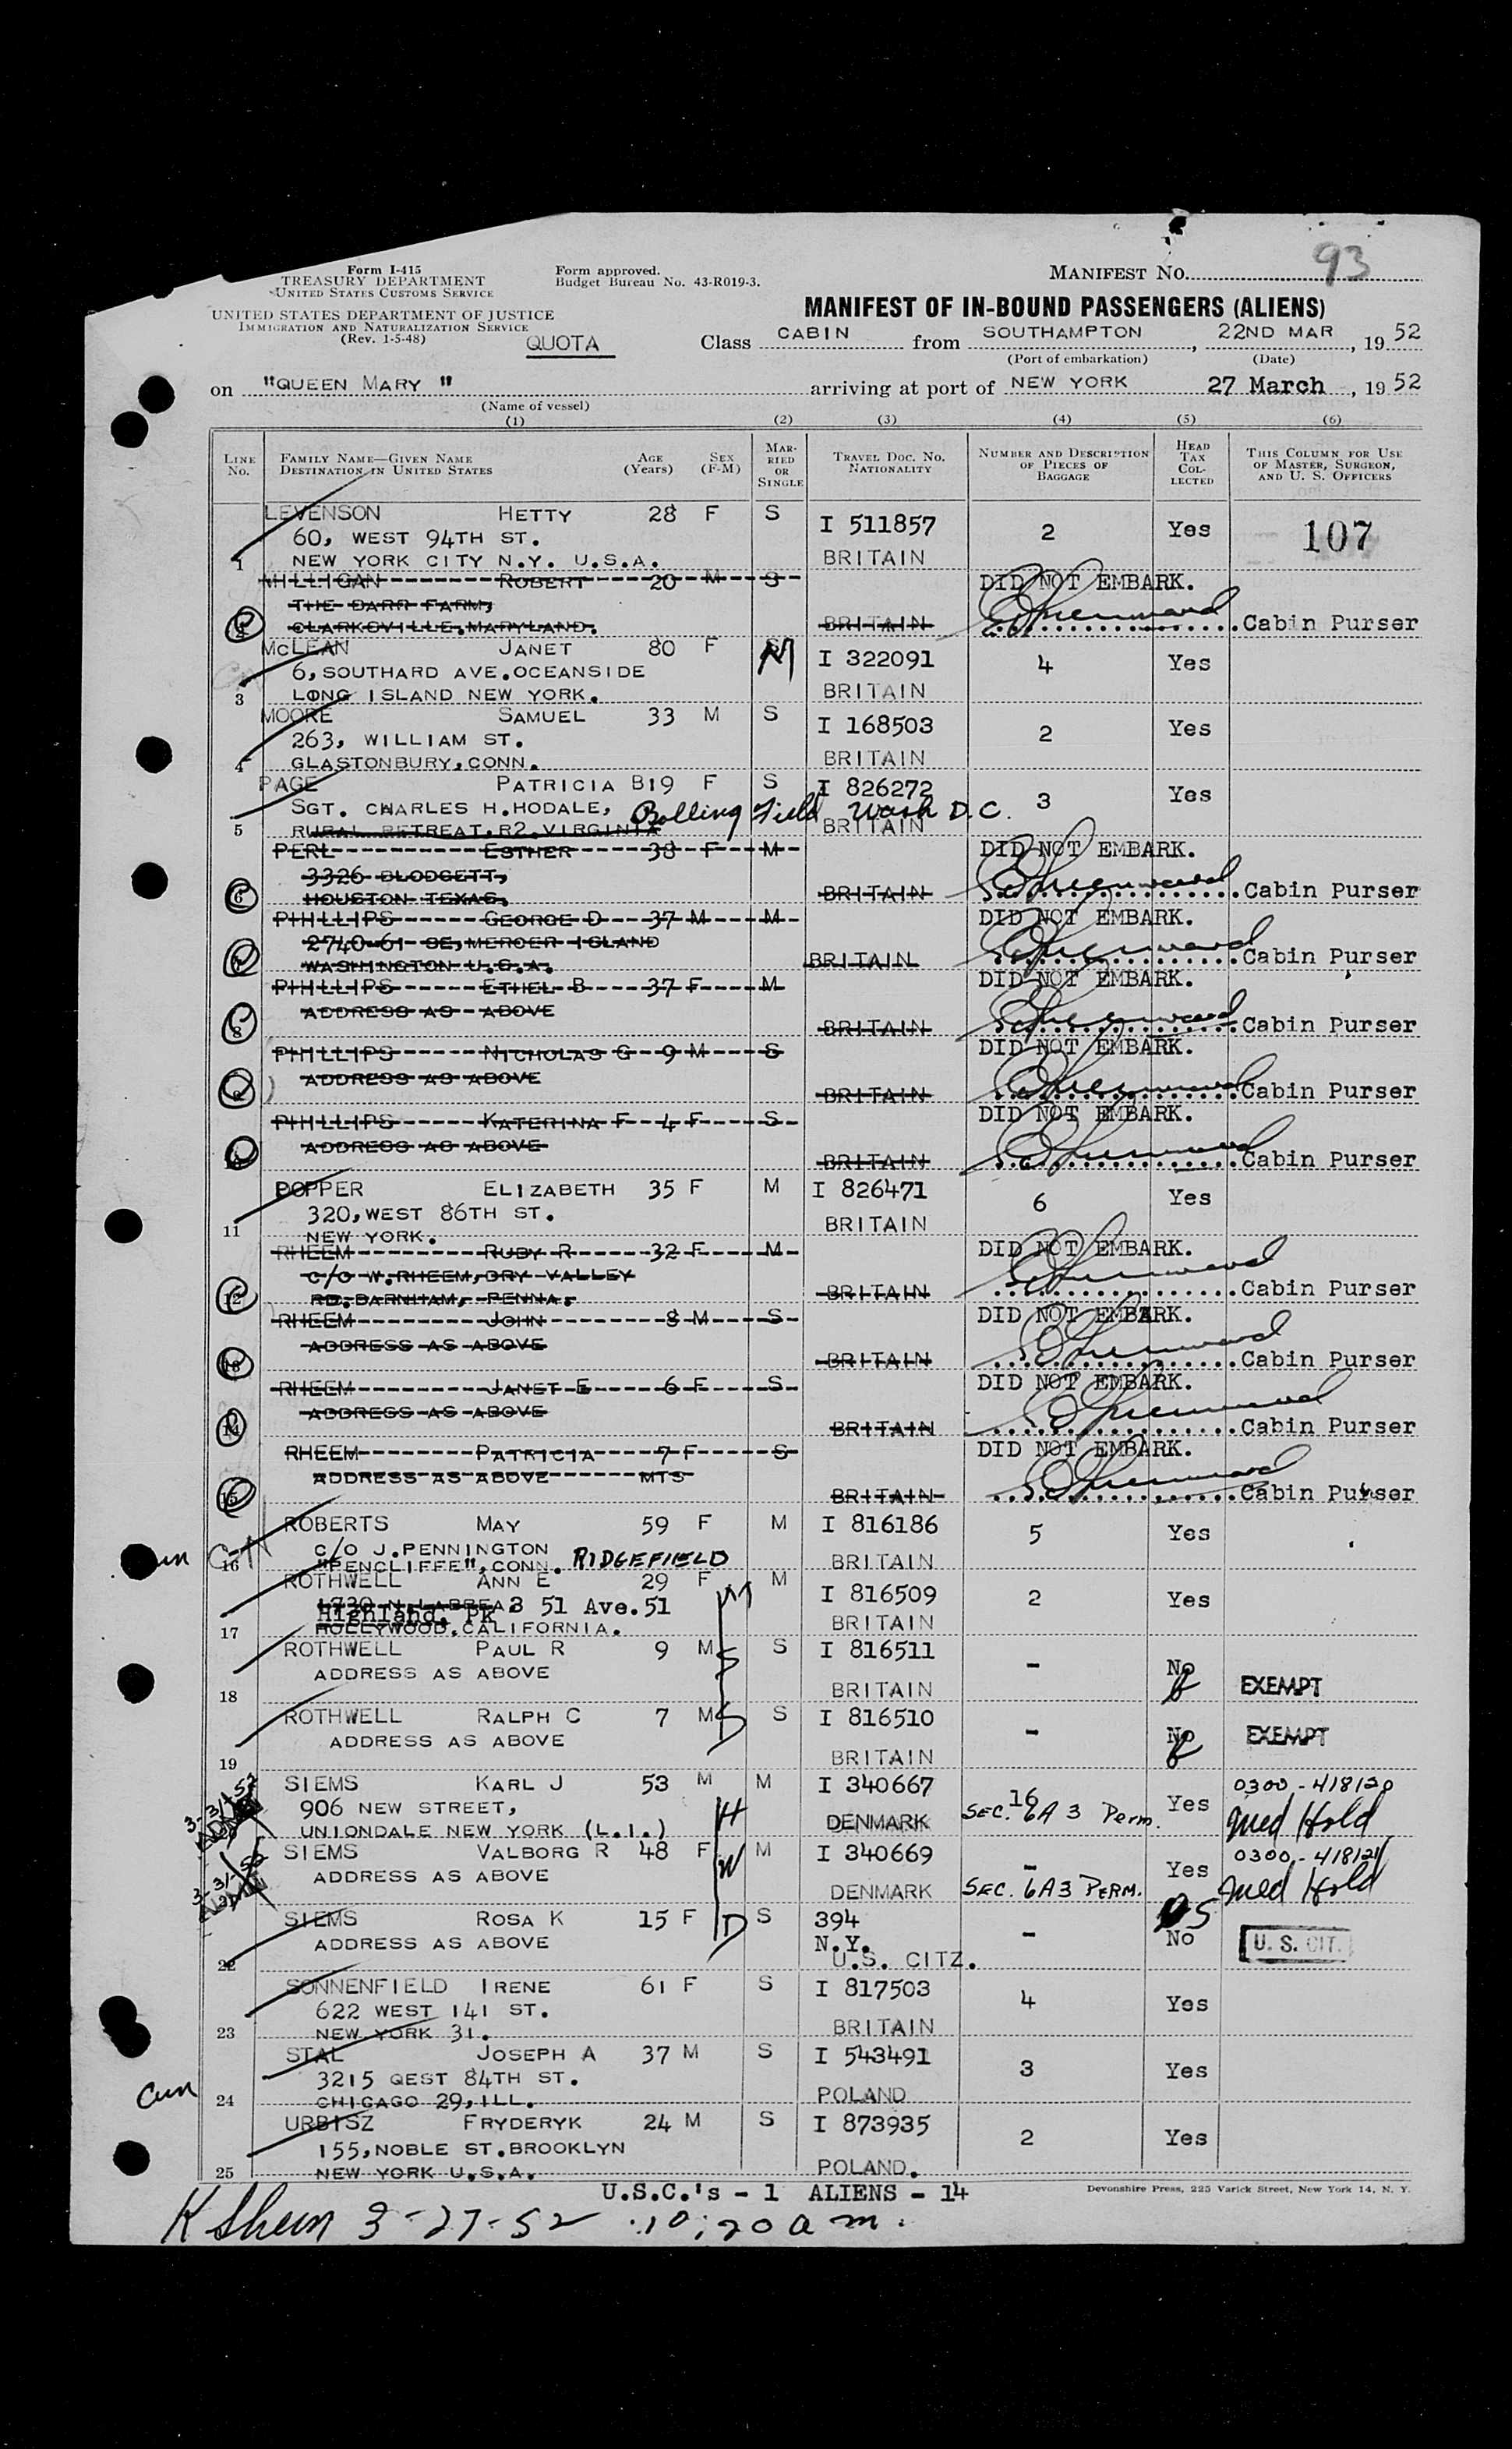 93
Form I-415
TREASURY DEPARTMENT
UNITED STATES CUSTOMS SERVICE
Form approved.
Budget Bureau No. 43-R019-3.
MANIFEST NO.
UNITED STATES DEPARTMENT OF JUSTICE
IMMIGRATION AND NATURALIZATION SERVICE
(Rev. 1-5-48)
QUOTA
MANIFEST OF IN-BOUND PASSENGERS (ALIENS)
Class CABIN from SOUTHAMPTON, 22ND MAR, 19 52
(Port of embarkation) (Date)
on "QUEEN MARY" arriving at port of NEW YORK 27 March, 19 52
(Name of vessel)
(1) (2) (3) (4) (5) (6)
LINE No. FAMILY NAME—GIVEN NAME DESTINATION IN UNITED STATES AGE (Years) SEX (F-M) MARRIED OR SINGLE TRAVEL DOC. NO. NATIONALITY NUMBER AND DESCRIPTION OF PIECES OF BAGGAGE HEAD TAX COLLECTED THIS COLUMN FOR USE OF MASTER, SURGEON, AND U. S. OFFICERS
LEVENSON HETTY 28 F S I 511857 2 Yes 107
60, WEST 94TH ST.
1 NEW YORK CITY N.Y. U.S.A. BRITAIN
MILLIGAN ROBERT 20 M S DID NOT EMBARK.
THE DARR FARM,
CLARKSVILLE.MARYLAND. BRITAIN Cabin Purser
McLEAN JANET 80 F M I 322091 4 Yes
6, SOUTHARD AVE.OCEANSIDE
3 LONG ISLAND NEW YORK. BRITAIN
MOORE SAMUEL 33 M S I 168503 2 Yes
263, WILLIAM ST.
4 GLASTONBURY, CONN. BRITAIN
PAGE PATRICIA B 19 F S I 826272 3 Yes
SGT. CHARLES H.HODALE, Bolling Field Wash D.C.
5 RURAL RETREAT, R2.VIRGINIA BRITAIN
PERL ESTHER 38 F M DID NOT EMBARK.
3326 BLODGETT,
6 HOUSTON TEXAS. BRITAIN Cabin Purser
PHILLIPS GEORGE D 37 M M DID NOT EMBARK.
2740-61 SE, MERCER ISLAND
WASHINGTON U.S.A. BRITAIN Cabin Purser
PHILLIPS ETHEL B 37 F M DID NOT EMBARK.
ADDRESS AS ABOVE
8 BRITAIN Cabin Purser
PHILLIPS NICHOLAS G 9 M S DID NOT EMBARK.
ADDRESS AS ABOVE
9 BRITAIN Cabin Purser
PHILLIPS KATERINA F 4 F S DID NOT EMBARK.
ADDRESS AS ABOVE
10 BRITAIN Cabin Purser
POPPER ELIZABETH 35 F M I 826471 6 Yes
320, WEST 86TH ST.
11 NEW YORK. BRITAIN
RHEEM RUBY R 32 F M DID NOT EMBARK.
C/O W.RHEEM, DRY VALLEY
12 RD.BARNHAM, PENNA. BRITAIN Cabin Purser
RHEEM JOHN 8 M S DID NOT EMBARK.
ADDRESS AS ABOVE
13 BRITAIN Cabin Purser
RHEEM JANET E 6 F S DID NOT EMBARK.
ADDRESS AS ABOVE
14 BRITAIN Cabin Purser
RHEEM PATRICIA 7 F S DID NOT EMBARK.
ADDRESS AS ABOVE MTS
15 BRITAIN Cabin Purser
ROBERTS MAY 59 F M I 816186 5 Yes
C/O J.PENNINGTON
16 "PENCLIFFE", CONN. RIDGEFIELD BRITAIN
ROTHWELL ANN E 29 F M I 816509 2 Yes
1730 N.LABREA 3 51 Ave.51
Highland. Pk
17 HOLLYWOOD.CALIFORNIA. BRITAIN
ROTHWELL PAUL R 9 M S S I 816511 - No
ADDRESS AS ABOVE
18 BRITAIN EXEMPT
ROTHWELL RALPH C 7 M S S I 816510 - No EXEMPT
ADDRESS AS ABOVE
19 BRITAIN
SIEMS KARL J 53 M M I 340667 16 Yes 0300-418120
3-31-52 906 NEW STREET, DENMARK SEC. 6A 3 Perm. Med Hold
UNIONDALE NEW YORK (L.I.) H
SIEMS VALBORG R 48 F W M I 340669 - Yes 0300-418121
3-31-52 ADDRESS AS ABOVE DENMARK SEC. 6A3 PERM. Med Hold
SIEMS ROSA K 15 F D S 394 - No
ADDRESS AS ABOVE N.Y. U. S. CIT.
22 U.S. CITZ.
SONNENFIELD IRENE 61 F S I 817503 4 Yes
622 WEST 141 ST.
23 NEW YORK 31. BRITAIN
STAL JOSEPH A 37 M S I 543491 3 Yes
3215 QEST 84TH ST.
24 CHICAGO 29, ILL. POLAND
URBISZ FRYDERYK 24 M S I 873935 2 Yes
155, NOBLE ST.BROOKLYN
25 NEW YORK U.S.A. POLAND.
U.S.C.'s - 1 ALIENS - 14
Devonshire Press, 225 Varick Street, New York 14, N. Y.
K Sheen 3-27-52 10:20 a m.